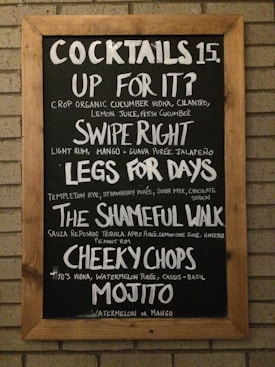 COCKTAILS 15.
UP FOR IT?
CROP ORGANIC CUCUMBER VODKA, CILANTRO,
LEMON JUICE, FRESH CUCUMBER
SWIPE RIGHT
LIGHT RUM, MANGO + GUAVA PURÉE, JALAPEÑO
LEGS FOR DAYS
TEMPLETON RYE, STRAWBERRY PURÉE, SOUR MIX, CHOCOLATE
STRAW
THE SHAMEFUL WALK
SAUZA REPOSADO TEQUILA, APPLE PURÉE, LEMON-LIME JUICE,
PEANUT RIM
CHEEKY CHOPS
TITO'S VODKA, WATERMELON PURÉE, CASSIS - BASIL
MOJITO
WATERMELON OR MANGO